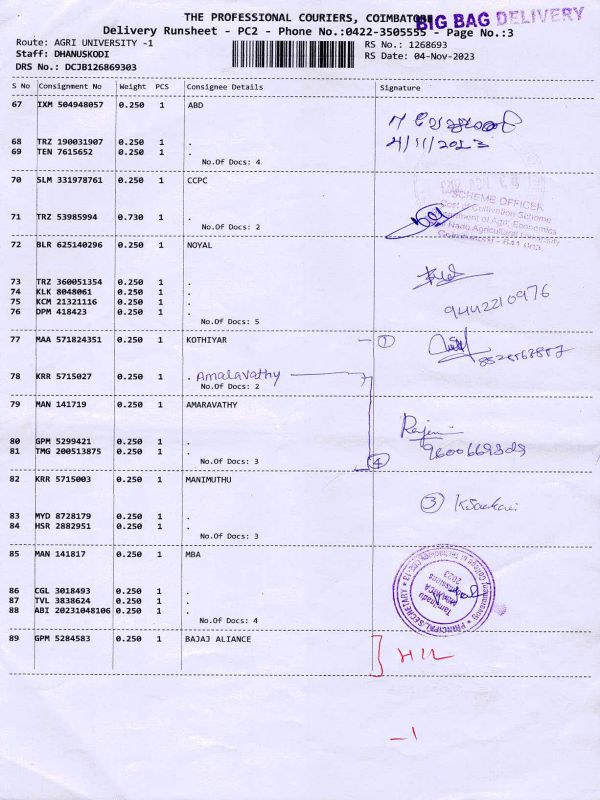 THE PROFESSIONAL COURIERS, COIMBATORE
BIG BAG DELIVERY
Delivery Runsheet - PC2 - Phone No.:0422-3505555 - Page No.:3
Route: AGRI UNIVERSITY -1
RS No.: 1268693
Staff: DHANUSKODI
RS Date: 04-Nov-2023
DRS No.: DCJB126869303
S No Consignment No Weight PCS Consignee Details Signature
67 IXM 504948057 0.250 1 ABD
68 TRZ 190031907 0.250 1 .
4/11/2023
69 TEN 7615652 0.250 1 .
No.Of Docs: 4
70 SLM 331978761 0.250 1 CCPC
SCHEME OFFICER
Cost of Cultivation Scheme
71 TRZ 53985994 0.730 1 .
Department of Agri. Economics
No.Of Docs: 2
Tamil Nadu Agricultural University
Coimbatore - 641 003.
72 BLR 625140296 0.250 1 NOYAL
73 TRZ 360051354 0.250 1 .
74 KLK 8048061 0.250 1 .
75 KCM 21321116 0.250 1 .
9442210976
76 DPM 418423 0.250 1 .
No.Of Docs: 5
77 MAA 571824351 0.250 1 KOTHIYAR
1
78 KRR 5715027 0.250 1 . Amalavathy
No.Of Docs: 2
79 MAN 141719 0.250 1 AMARAVATHY
80 GPM 5299421 0.250 1 .
81 TMG 200513875 0.250 1 .
No.Of Docs: 3
4
82 KRR 5715003 0.250 1 MANIMUTHU
3
83 MYD 8728179 0.250 1 .
84 HSR 2882951 0.250 1 .
No.Of Docs: 3
85 MAN 141817 0.250 1 MBA
86 CGL 3018493 0.250 1 .
87 TVL 3838624 0.250 1 .
88 ABI 20231048106 0.250 1 .
No.Of Docs: 4
PRINCIPAL SECRETARY
89 GPM 5284583 0.250 1 BAJAJ ALIANCE
-1